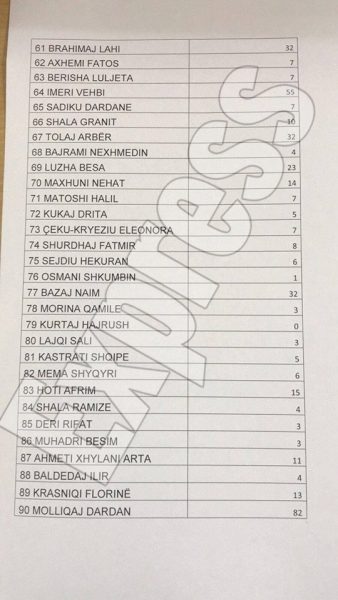 61 BRAHIMAJ LAHI 32
62 AXHEMI FATOS 7
63 BERISHA LULJETA 7
64 IMERI VEHBI 55
65 SADIKU DARDANE 7
66 SHALA GRANIT 10
67 TOLAJ ARBËR 32
68 BAJRAMI NEXHMEDIN 4
69 LUZHA BESA 23
70 MAXHUNI NEHAT 14
71 MATOSHI HALIL 7
72 KUKAJ DRITA 5
73 ÇEKU-KRYEZIU ELEONORA 7
74 SHURDHAJ FATMIR 8
75 SEJDIU HEKURAN 6
76 OSMANI SHKUMBIN 1
77 BAZAJ NAIM 32
78 MORINA QAMILE 3
79 KURTAJ HAJRUSH 0
80 LAJQI SALI 3
81 KASTRATI SHQIPE 5
82 MEMA SHYQYRI 6
83 HOTI AFRIM 15
84 SHALA RAMIZE 4
85 DERI RIFAT 3
86 MUHADRI BESIM 3
87 AHMETI XHYLANI ARTA 11
88 BALDEDAJ ILIR 4
89 KRASNIQI FLORINË 13
90 MOLLIQAJ DARDAN 82
Express